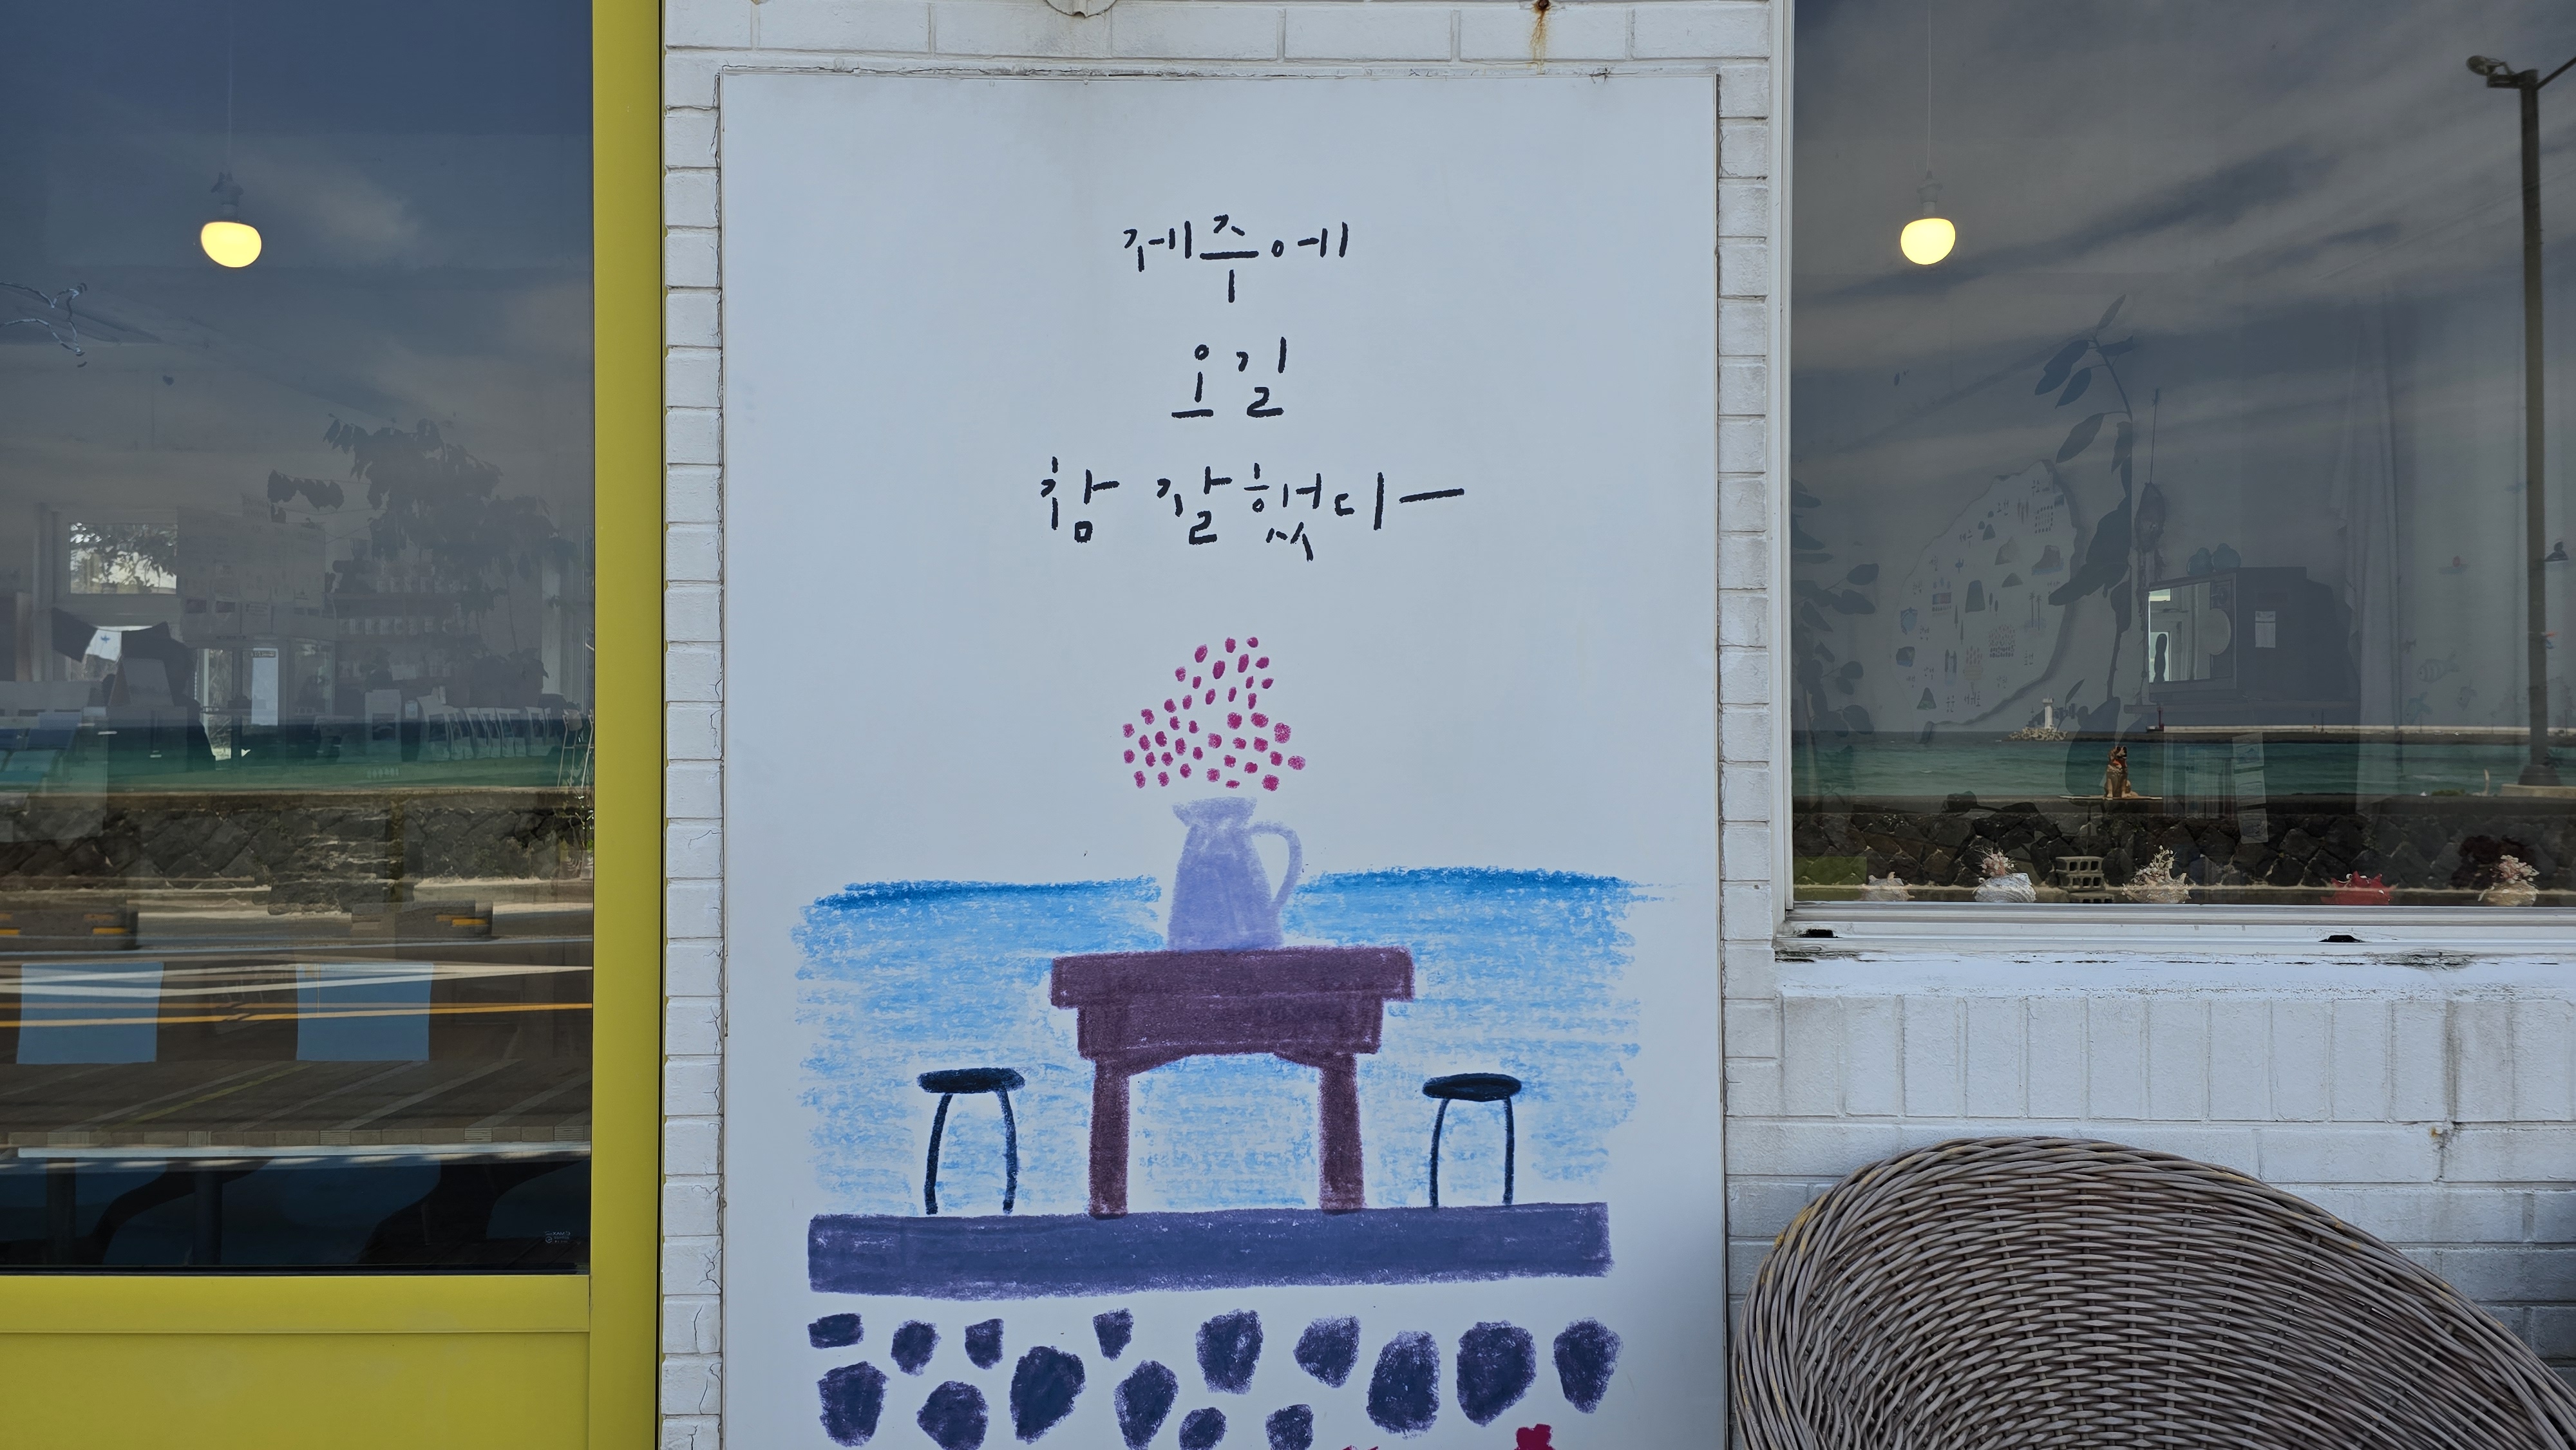 제주에
오길
참 잘했디ㅡ